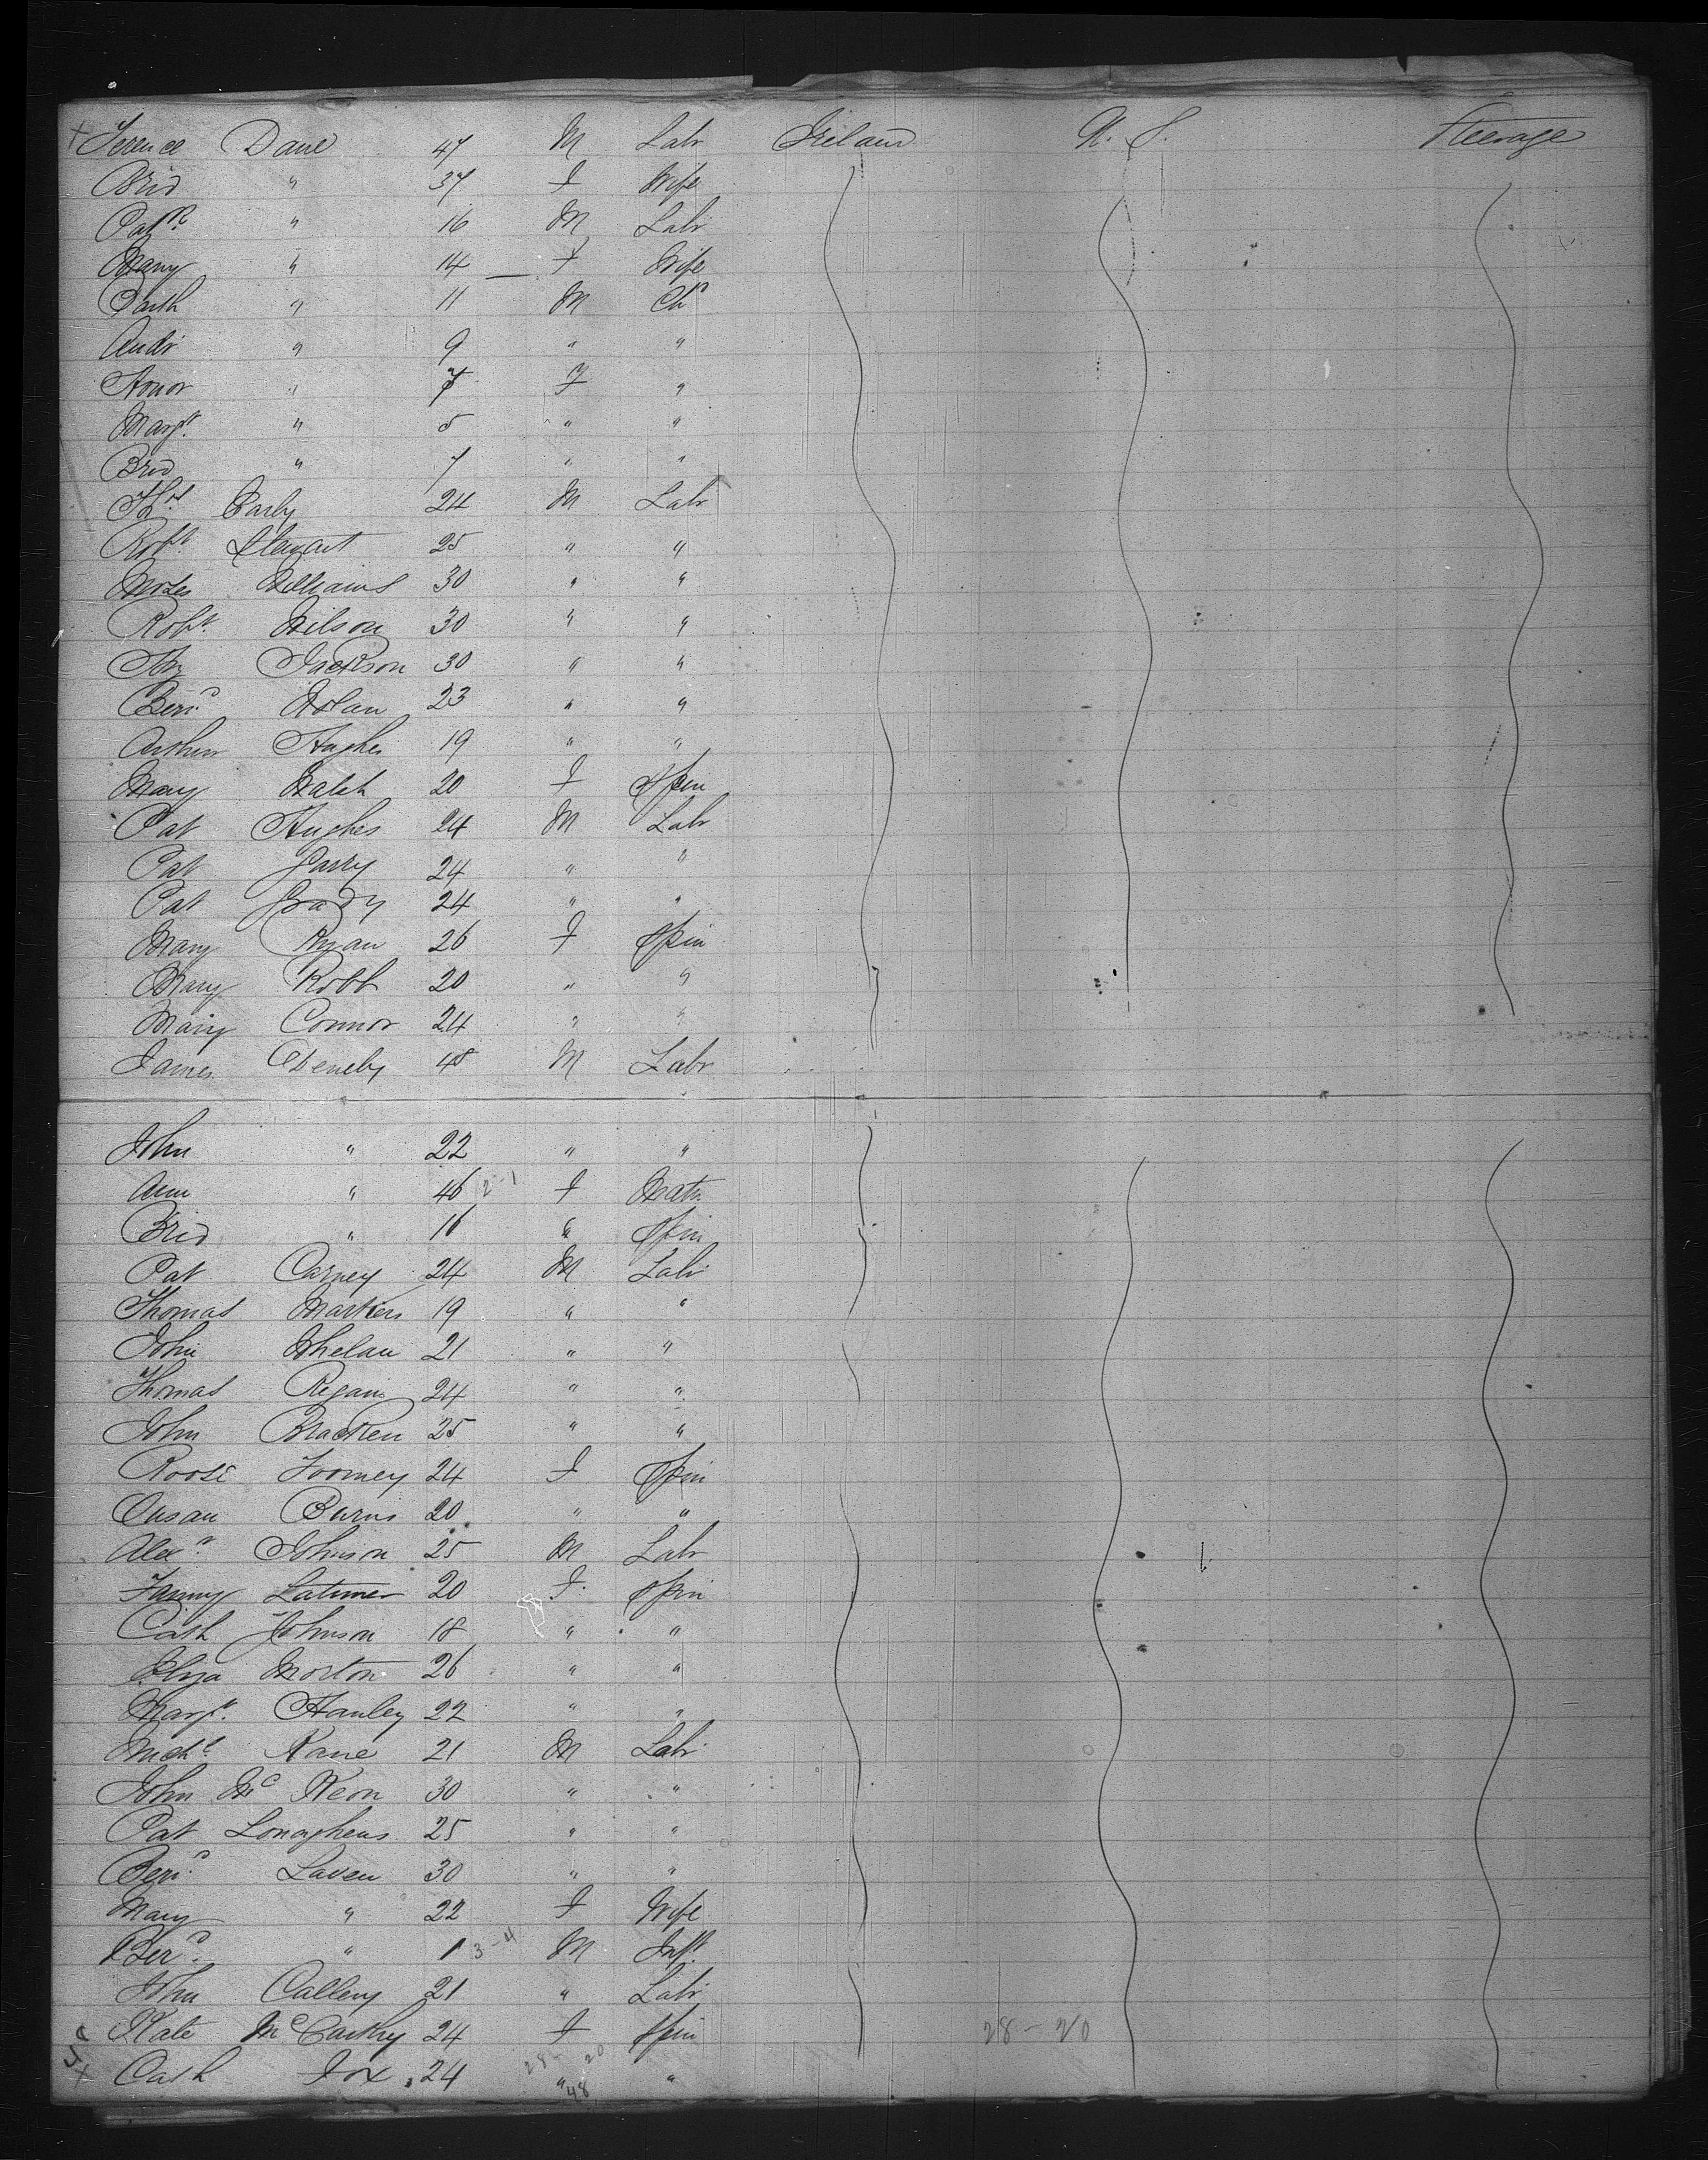 + Terence Dane 47 M Labr Ireland U. S. Steerage
Brid " 37 F Wife
Patk " 16 M Labr
Mary " 14 — F Wife
Barth " 11 M Chd
Andr " 9 " "
Honor " 7 F "
Margt. " 5 " "
Brid " 7 " "
Ths 24 M Labr
Robt. Stewart 25 " "
Moses Williams 30 " "
Robt. Wilson 30 " "
Jackson 30 " "
Bernd Nolan 23 " "
Arthur Hughes 19 " "
Mary Walsh 20 F Spin
Pat Hughes 24 M Labr
Pat Garry 24 " "
Pat Grady 24 " "
Mary Ryan 26 F Spin
Mary Robb 20 " "
Mary Connor 24 " "
James 48 M Labr
John " 22 " "
Ann " 46 2-1 F Matr.
Brid " 16 " Spin
Pat Carney 24 M Labr
Thomas Martien 19 " "
John Whelan 21 " "
Thomas Regan 24 " "
John Bracken 25 " "
Roose Toomey 24 F Spin
Susan Burns 20 " "
Alexr Johnson 25 M Labr
Fanny Latimer 20 F. Spin
Cath Johnson 18 " "
Eliza Morton 26 " "
Margt. Hanley 22 " "
Michl. Kane 21 M Labr
John Mc Keon 30 " "
Pat Lonaghens 25 " "
Bernd Laven 30 " "
Mary " 22 F Wife
Berd. " 1 3-4 M Inft
John Callery 21 " Labr
Kate McCarthy 24 F Spin 28-20
Cath Fox 24 28-20 " 48 "